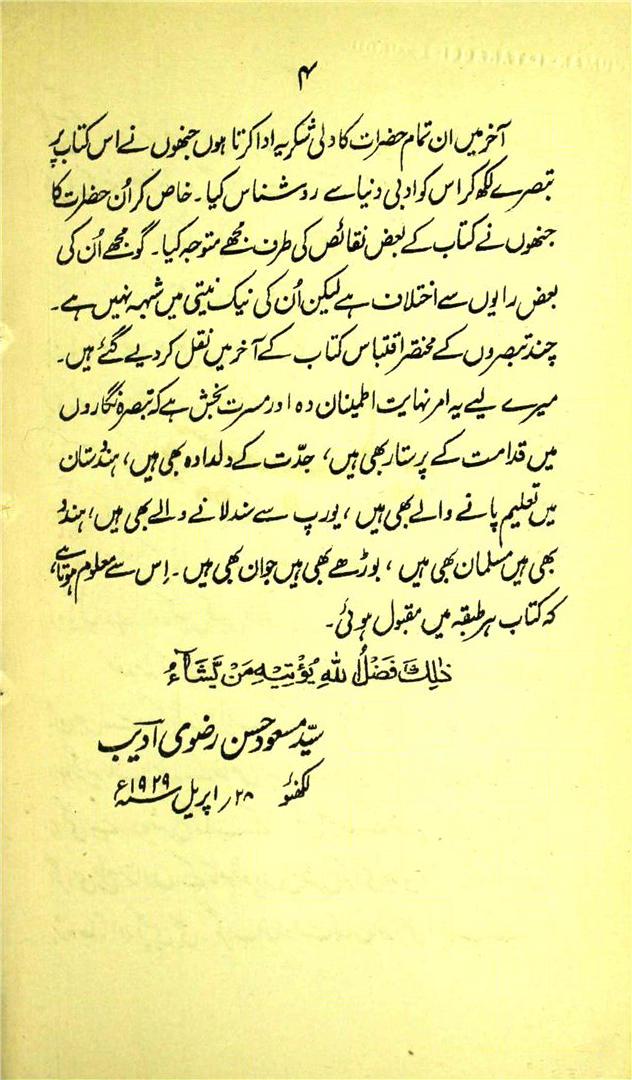 ۴
آخر میں ان تمام حضرات کا دلی شکریہ ادا کرتا ہوں جنھوں نے اس کتاب پر
تبصرے لکھ کر اس کو ادبی دنیا سے روشناس کیا۔ خاص کر اُن حضلرت کا
جنھوں نے کتاب کے بعض نقائص کی طرف مجھے متوجہ کیا۔ گو مجھے اُن کی
بعض رایوں سے اختلاف ہے لیکن اُن کی نیک نیتی میں شبہہ نہیں ہے۔
چند تبصروں کے مختصر اقتباس کتاب کے آخر میں نقل کر دیے گئے ہیں۔
میرے لیے یہ امر نہایت اطمینان دہ اور مسرت بخش ہے کہ تبصرہ نگاروں
میں قدامت کے پرستار بھی ہیں، جدّت کے دلدادہ بھی ہیں، ہندستان
میں تعلیم پانے والے بھی ہیں، یورپ سے سند لانے والے بھی ہیں، ہندو
بھی ہیں مسلمان بھی ہیں، بوڑھے بھی ہیں جوان بھی ہیں۔ اِس سے معلوم ہوتا ہے،
کہ کتاب ہر طبقہ میں مقبول ہوئی۔
ذٰلِكَ فَضْلُ اللهِ يُؤْتِيْهِ مَنْ يَّشَآءُ
سیّد مسعود حسن رضوی ادیب
لکھنؤ ۲۸؍ اپریل سنہ ۱۹۲۹ء